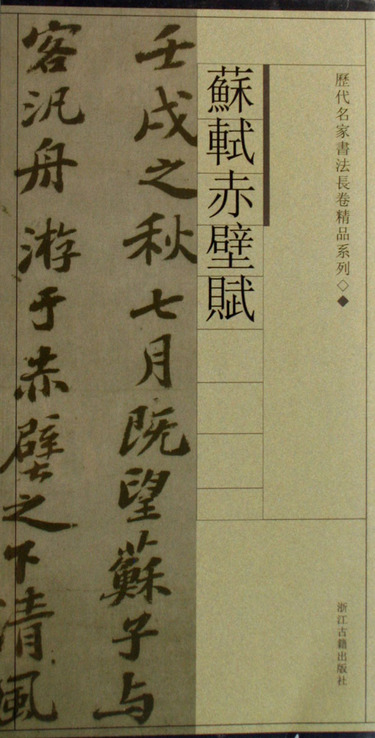 歷代名家書法長卷精品系列◇◆
蘇軾赤壁賦
壬戌之秋七月既望蘇子与
客汎舟游于赤壁之下清風
浙江古籍出版社